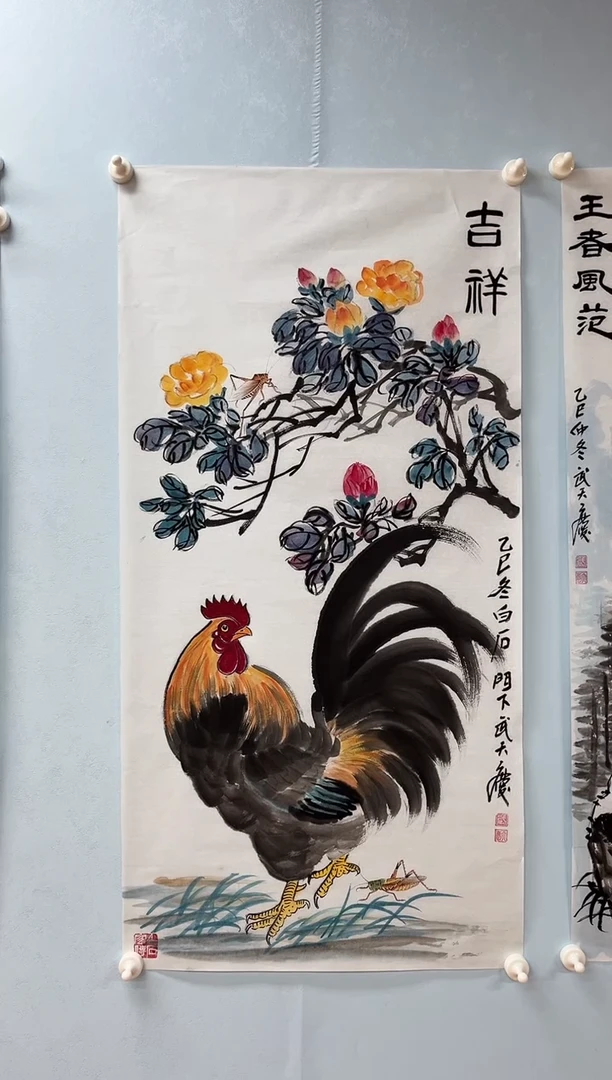 吉祥
乙巳冬白石門下武大
王者風范
乙巳仲冬武大